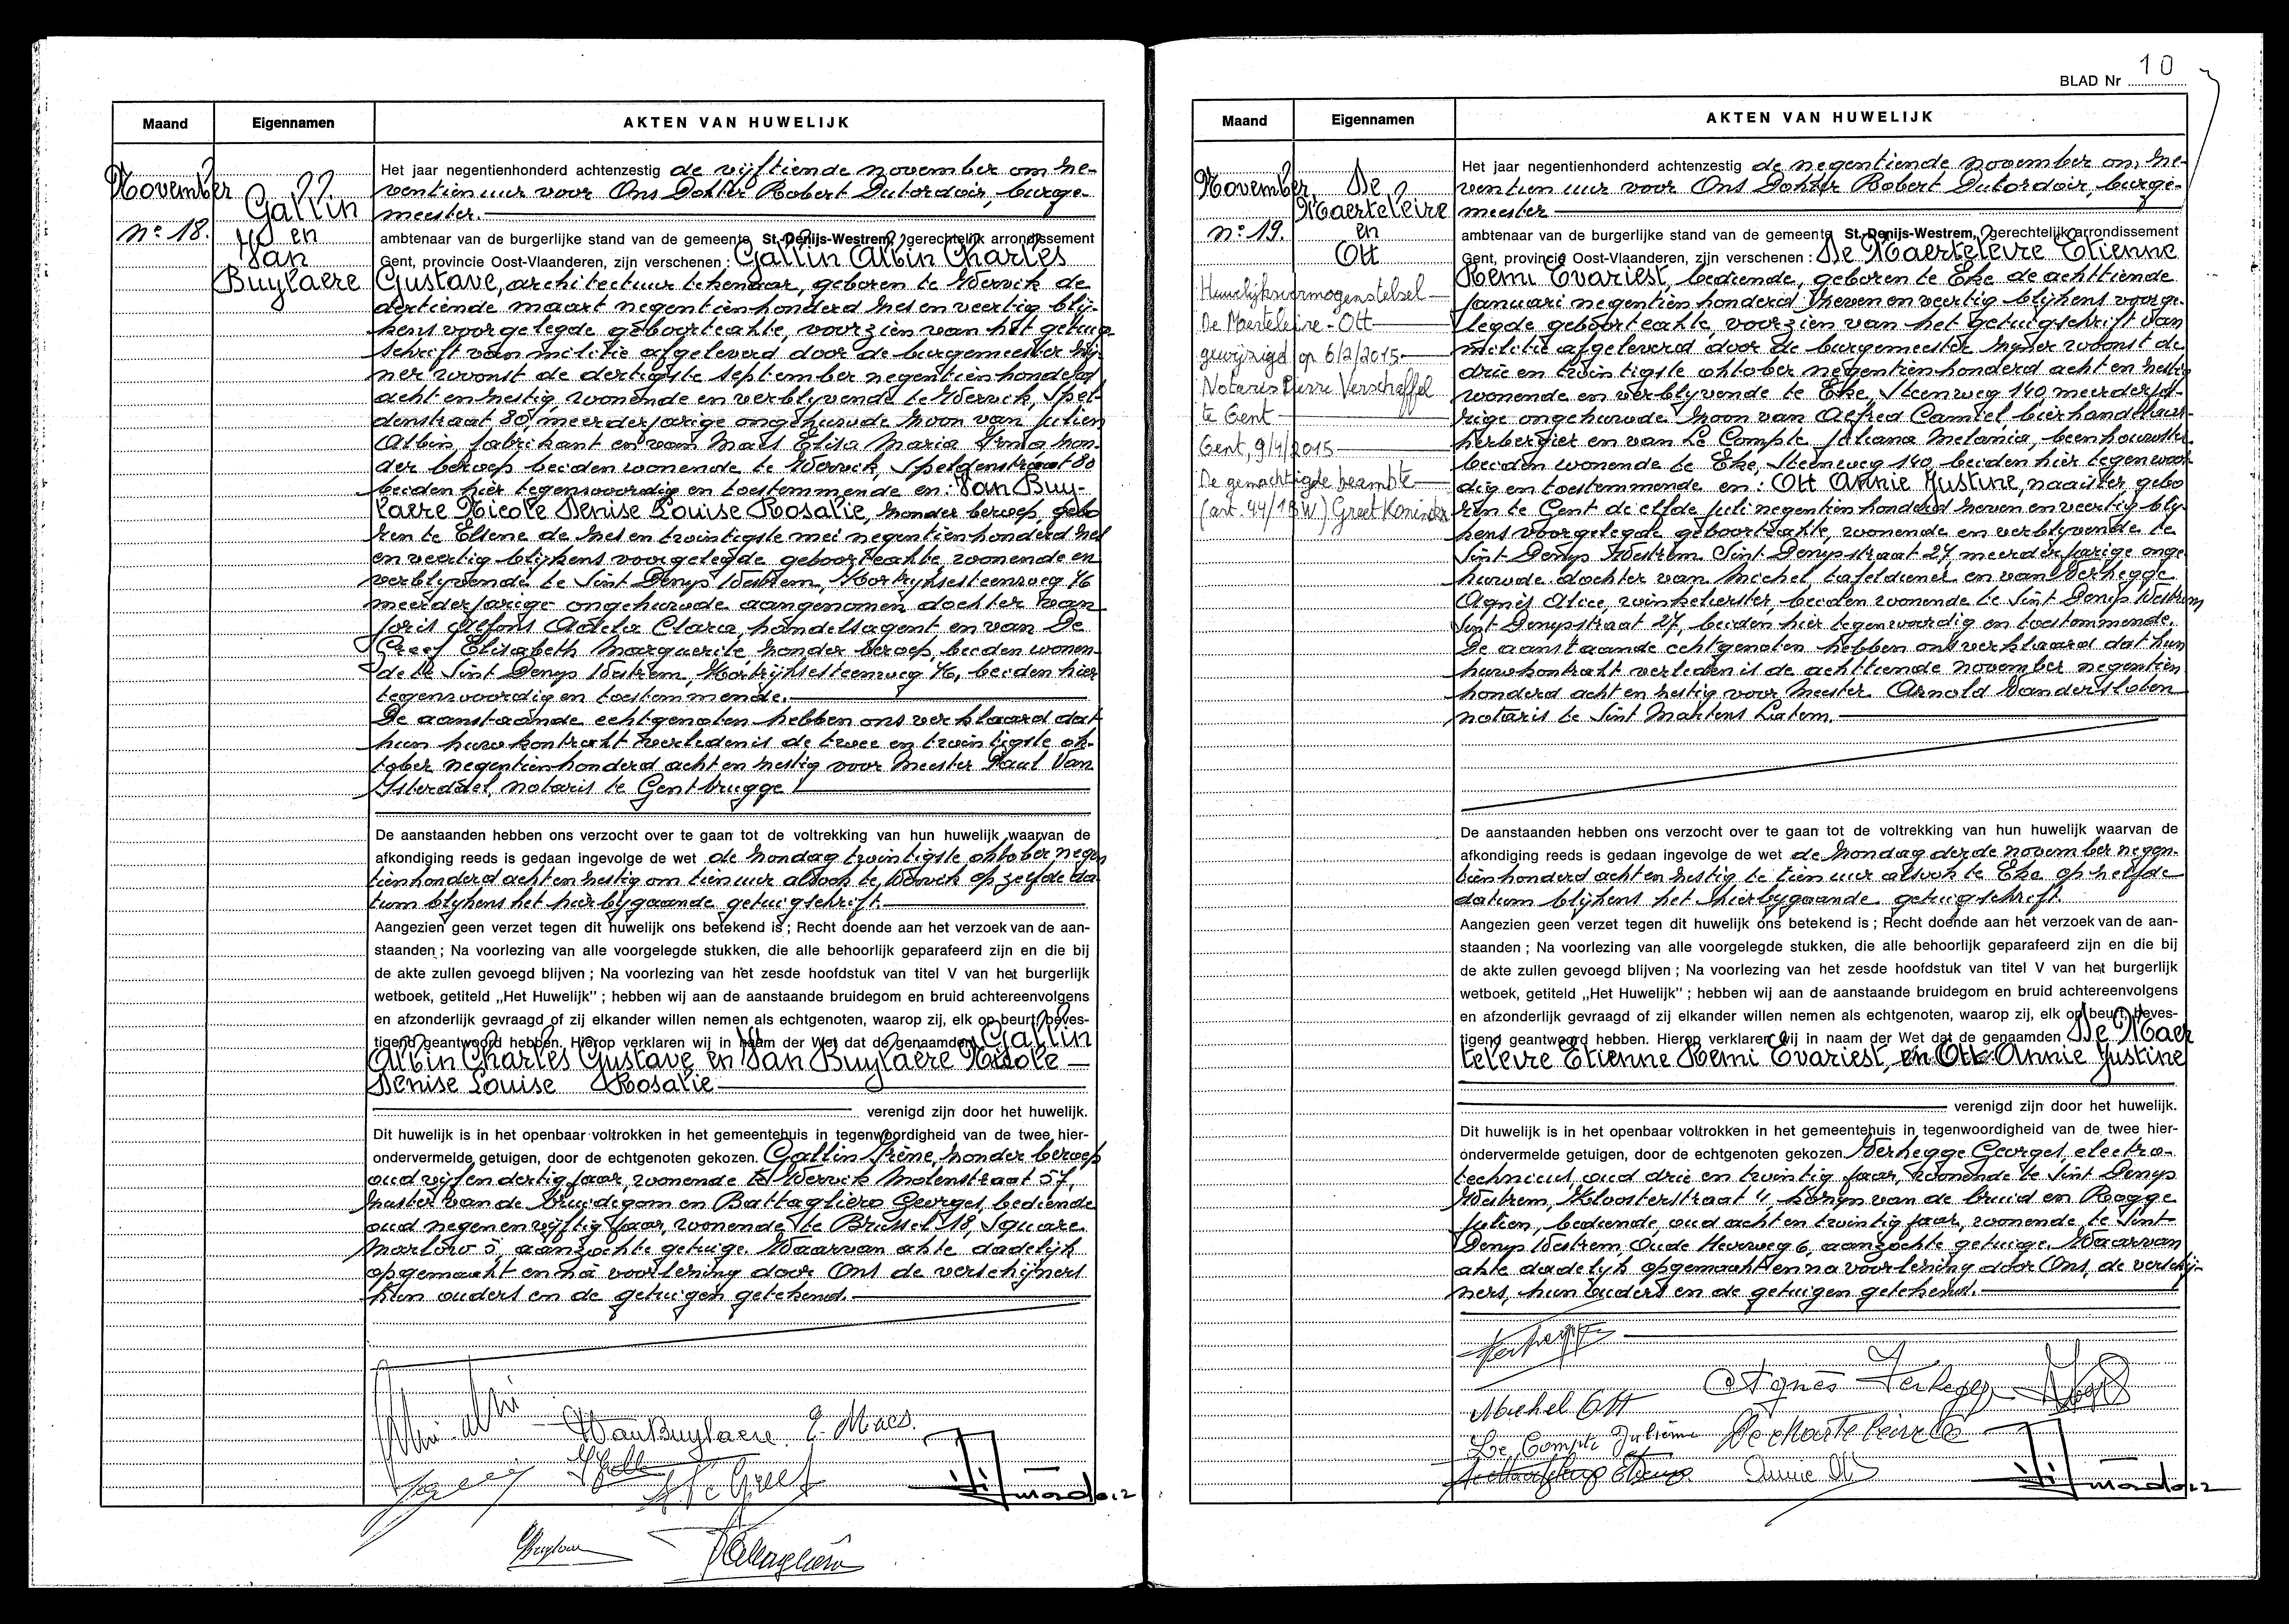 Maand
Eigennamen
AKTEN VAN HUWELIJK
November
nº 18.
Gallin
en
Van
Buylaere
Het jaar negentienhonderd achtenzestig de vijftiende november om ze-
ventien uur voor Ons Dokter Robert Dutordoir, burge-
meester.
ambtenaar van de burgerlijke stand van de gemeente St.-Denijs-Westrem, gerechtelijk arrondissement
Gent, provincie Oost-Vlaanderen, zijn verschenen : Gallin Albin Charles
Gustave, architectuur tekenaar, geboren te Wervik de
dertiende maart negentienhonderd zes en veertig blij-
kens voorgelegde geboorteakte, voorzien van het getuig
schrift van militie afgeleverd door de burgemeester zij-
ner woonst de dertigste september negentienhonderd
acht en zestig, wonende en verblyvende te Wervik, Spel-
denstraat 80, meerderjarige ongehuwde zoon van Julien
Albin, fabrikant en van Maes Elisa Maria Irma, zon-
der beroep beiden wonende te Wervik, Speldenstraat 80
beiden hier tegenwoordig en toestemmende en: Van Buy-
laere Nicole Denise Louise Rosalie, zonder beroep, gebo
ren te Elsene de zes en twintigste mei negentienhonderd zes
en veertig blijkens voorgelegde geboorteakte, wonende en
verblyvende te Sint Denys Westrem, Kortrijksesteenweg 76
meerderjarige ongehuwde aangenomen dochter van
Joris Alfons Adela Clara, handelsagent en van De
Greef Elisabeth Marguerite, zonder beroep, beiden wonen-
de te Sint Denys Westrem, Kortrijksesteenweg 76, beiden hier
tegenwoordig en toestemmende.
De aanstaande echtgenoten hebben ons verklaard dat
hun huwkontrakt verleden is de twee en twintigste ok-
tober negentienhonderd acht en zestig voor Meester Paul Van
Isterdael, notaris te Gentbrugge
De aanstaanden hebben ons verzocht over te gaan tot de voltrekking van hun huwelijk waarvan de
afkondiging reeds is gedaan ingevolge de wet de zondag twintigste oktober negen
tienhonderd acht en zestig om tien uur alsook te Wervik op zelfde da
tum blijkens het hierbijgaande getuigschrift.
Aangezien geen verzet tegen dit huwelijk ons betekend is ; Recht doende aan het verzoek van de aan-
staanden ; Na voorlezing van alle voorgelegde stukken, die alle behoorlijk geparafeerd zijn en die bij
de akte zullen gevoegd blijven ; Na voorlezing van het zesde hoofdstuk van titel V van het burgerlijk
wetboek, getiteld „Het Huwelijk" ; hebben wij aan de aanstaande bruidegom en bruid achtereenvolgens
en afzonderlijk gevraagd of zij elkander willen nemen als echtgenoten, waarop zij, elk op beurt, beves-
tigend geantwoord hebben. Hierop verklaren wij in naam der Wet dat de genaamden Gallin
Albin Charles Gustave en Van Buylaere Nicole
Denise Louise Rosalie
verenigd zijn door het huwelijk.
Dit huwelijk is in het openbaar voltrokken in het gemeentehuis in tegenwoordigheid van de twee hier-
ondervermelde getuigen, door de echtgenoten gekozen. Gallin Irène, zonder beroep
oud vijf en dertig jaar, wonende te Wervik Molenstraat 57,
zuster van de bruidegom en Battagliero Georges, bediende
oud negen en vijftig jaar, wonende te Brussel 18, Square
Marlow 5, aanzochte getuige. Waarvan akte dadelijk
opgemaakt en na voorlezing door Ons de verschijners
hun ouders en de getuigen getekend.
VanBuylaere E. Maes.
De Greef
BLAD Nr 10
Maand
Eigennamen
AKTEN VAN HUWELIJK
November
nº 19.
De
Maerteleire
en
Ott
Huwelijksvermogenstelsel
De Maerteleire - Ott
gewijzigd op 6/2/2015
Notaris Pierre Verschaffel
te Gent
Gent, 9/4/2015
De gemachtigde beambte
(art. 44/1BW) Greet Koninckx
Het jaar negentienhonderd achtenzestig de negentiende november om ze-
ventien uur voor Ons Dokter Robert Dutordoir, burge-
meester
ambtenaar van de burgerlijke stand van de gemeente St.-Denijs-Westrem, gerechtelijk arrondissement
Gent, provincie Oost-Vlaanderen, zijn verschenen : De Maerteleire Etienne
Remi Evariest, bediende, geboren te Eke de achttiende
januari negentienhonderd zeven en veertig blijkens voorge-
legde geboorteakte, voorzien van het getuigschrift van
militie afgeleverd door de burgemeester zijner woonst de
drie en twintigste oktober negentienhonderd acht en zestig
wonende en verblyvende te Eke, Steenweg 140, meerderja-
rige ongehuwde zoon van Alfred Camiel, bierhandelaar-
herbergier en van Le Compte Juliana Melania, beenhouwster
beiden wonende te Eke, Steenweg 140, beiden hier tegenwoor-
dig en toestemmende en : Ott Annie Justine, naaister gebo
ren te Gent de elfde juli negentienhonderd zeven en veertig bly-
kens voorgelegde geboorteakte, wonende en verblyvende te
Sint-Denys Westrem Sint Denysstraat 27, meerderjarige onge
huwde dochter van Michel tafeldiener en van Verhegge
Agnès Alice, winkelierster, beiden wonende te Sint Denys Westrem
Sint Denysstraat 27, beiden hier tegenwoordig en toestemmende.
De aanstaande echtgenoten hebben ons verklaard dat hun
huwkontrakt verleden is de achttiende november negentien
honderd acht en zestig voor Meester Arnold Vandersloten
notaris te Sint Martens Latem.
De aanstaanden hebben ons verzocht over te gaan tot de voltrekking van hun huwelijk waarvan de
afkondiging reeds is gedaan ingevolge de wet de zondag derde november negen-
tienhonderd acht en zestig te tien uur alsook te Eke op zelfde
datum blijkens het hierbygaande getuigschrift.
Aangezien geen verzet tegen dit huwelijk ons betekend is ; Recht doende aan het verzoek van de aan-
staanden ; Na voorlezing van alle voorgelegde stukken, die alle behoorlijk geparafeerd zijn en die bij
de akte zullen gevoegd blijven ; Na voorlezing van het zesde hoofdstuk van titel V van het burgerlijk
wetboek, getiteld „Het Huwelijk" ; hebben wij aan de aanstaande bruidegom en bruid achtereenvolgens
en afzonderlijk gevraagd of zij elkander willen nemen als echtgenoten, waarop zij, elk op beurt, beves-
tigend geantwoord hebben. Hierop verklaren wij in naam der Wet dat de genaamden De Maer
teleire Etienne Remi Evariest, en Ott Annie Justine
verenigd zijn door het huwelijk.
Dit huwelijk is in het openbaar voltrokken in het gemeentehuis in tegenwoordigheid van de twee hier-
ondervermelde getuigen, door de echtgenoten gekozen Verhegge Georges, electro-
technicus, oud drie en twintig jaar, wonende te Sint Denys
Westrem, Kloosterstraat 11, kozyn van de bruid en Rogge
Julien, bediende oud acht en twintig jaar, wonende te Sint
Denys Westrem, Oude Heerweg 6, aanzochte getuige. Waarvan
akte dadelyk opgemaakt en na voorlezing door Ons, de verschij-
ners, hun ouders en de getuigen getekend.
Agnès Verhegge
Michel Ott
Le Compte Julienne De Maerteleire
Annie Ott